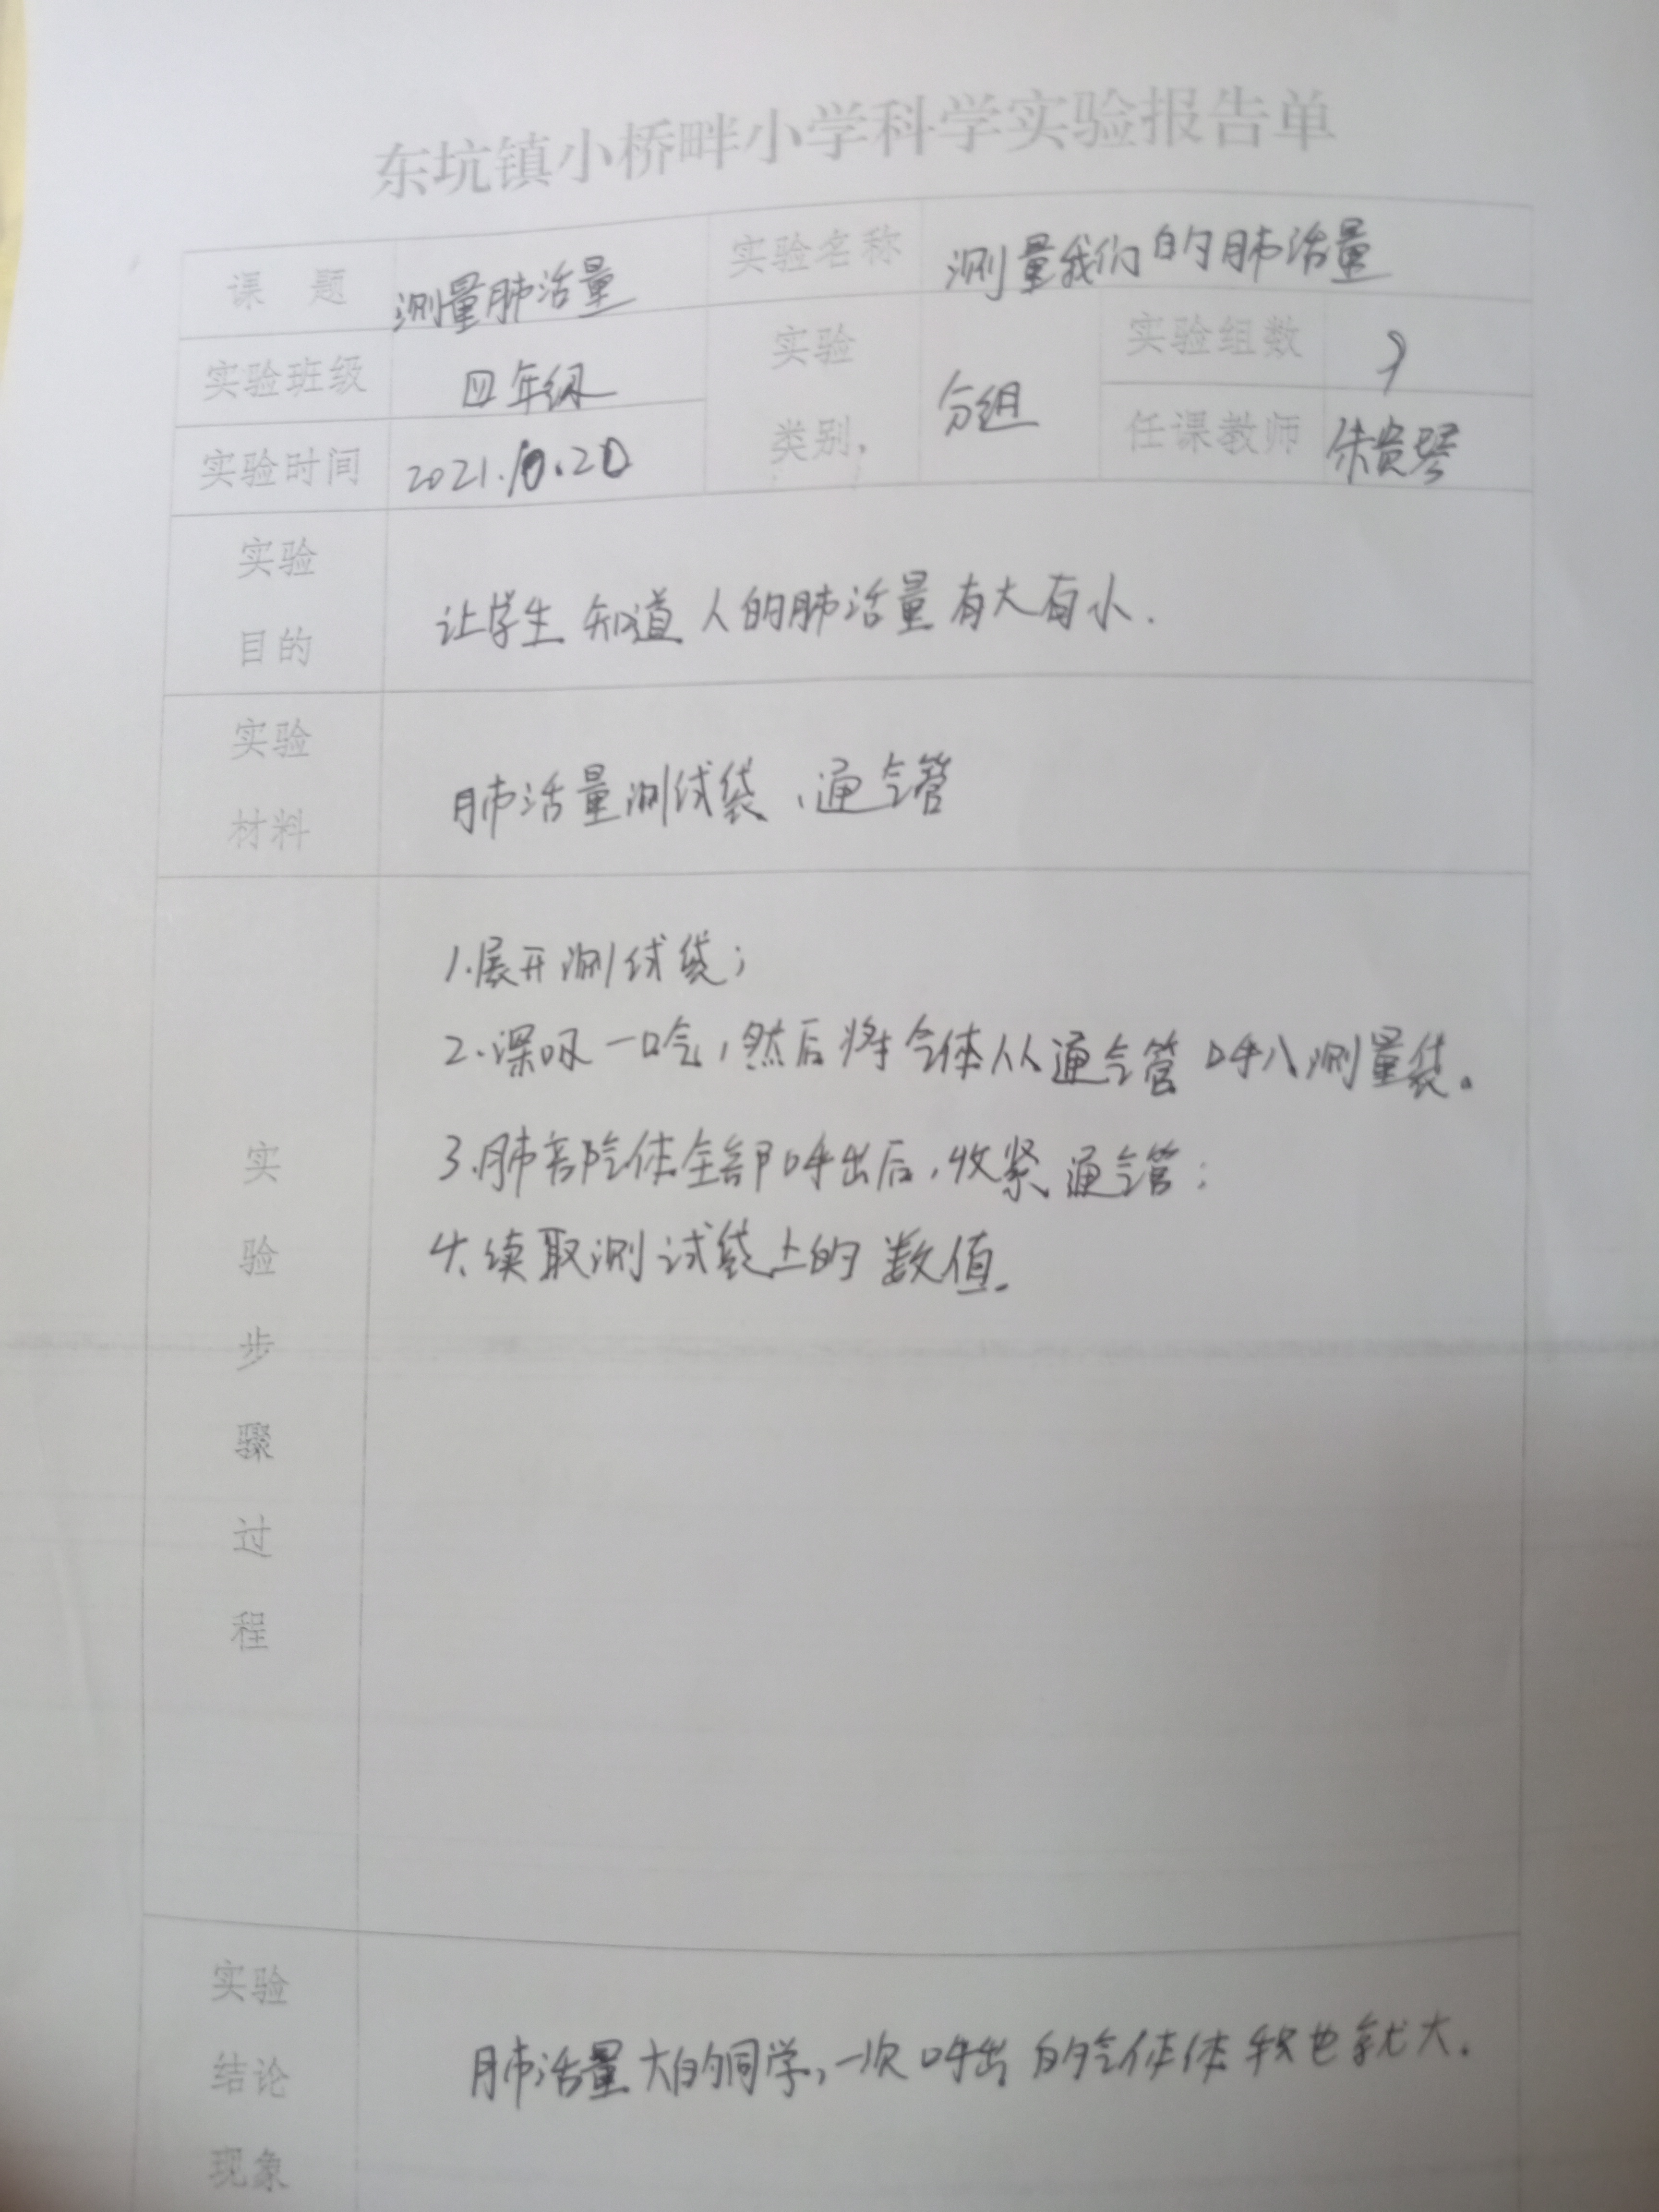 东坑镇小桥畔小学科学实验报告单
课 题 测量肺活量 实验名称 测量我们的肺活量
实验班级 四年级 实验类别 分组 实验组数
实验时间 2021.10.20 任课教师 朱贵琴
实验目的 让学生知道人的肺活量有大有小.
实验材料 肺活量测试袋、通气管
实验步骤过程
1.展开测试袋;
2.深吸一口气,然后将气体从通气管呼入测量袋。
3.肺部气体全部呼出后,收紧通气管;
4、续取测试袋上的数值。
实验结论现象 肺活量大的同学,一次呼出的气体体积也就大.